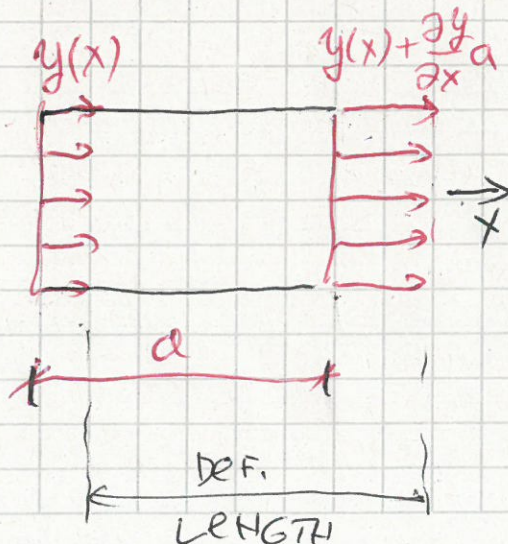 y(x)
y(x) + ∂y/∂x a
x
a
DEF.
LENGTH